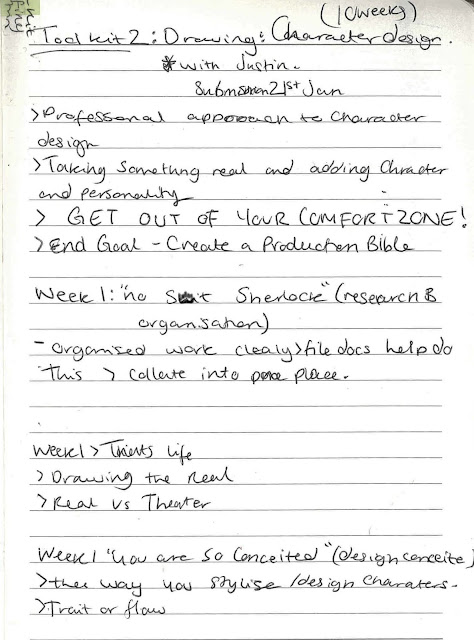 (10weeks)
Toolkit 2: Drawing: Character design.
* with Justin.
Submission 21st Jan
> Professional approach to Character
design
> Taking something real and adding Chracter
and personality
> GET OUT OF YOUR COMFORT ZONE!
> End Goal - Create a Production Bible
Week 1: "no Sherlock" (research &
organisation)
- organised work clealy > file docs help do
this > Collate into place.
Week 1 > life
> Drawing the Real
> Real vs Theater
Week 1 "You are so Conceited" (design conceite)
> thee way you stylise / design charaters.
> Trait or flaw